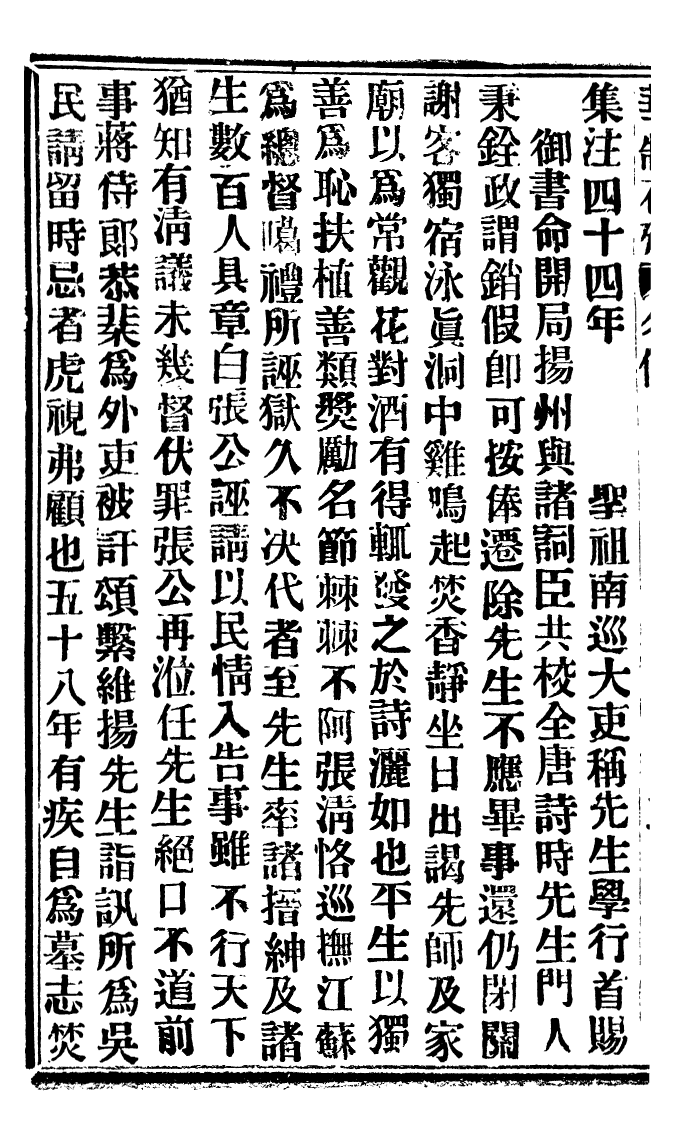 集注四十四年　　　聖祖南巡大吏稱先生學行首賜
御書命開局揚州與諸詞臣共校全唐詩時先生門人
秉銓政謂銷假卽可按俸遷除先生不應畢事還仍閉關
謝客獨宿泳眞洞中雞鳴起焚香靜坐日出謁先師及家
廟以爲常觀花對酒有得輒發之於詩灑如也平生以獨
善爲恥扶植善類奬勵名節棘棘不阿張淸恪巡撫江蘇
爲總督噶禮所誣獄久不決代者至先生率諸搢紳及諸
生數百人具章白張公誣請以民情入告事雖不行天下
猶知有淸議未幾督伏罪張公再涖任先生絕口不道前
事蔣侍郞恭棐爲外吏被訐頌繫維揚先生詣訊所爲吳
民請留時忌者虎視弗顧也五十八年有疾自爲墓志焚